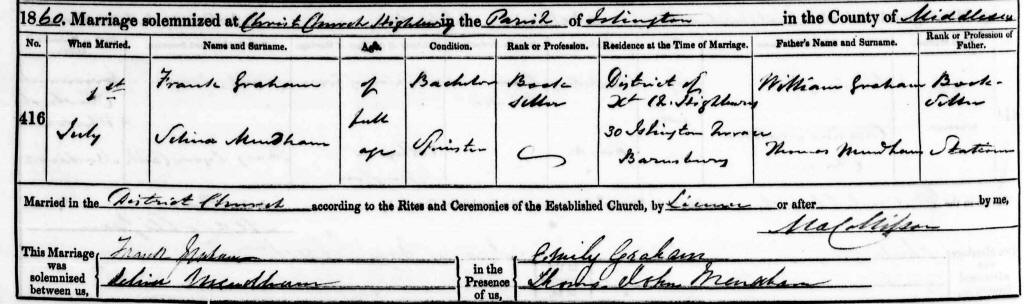 1860. Marriage solemnized at Christ Church Highbury in the Parish of Islington in the County of Middlesex
No. When Married. Name and Surname. Age Condition. Rank or Profession. Residence at the Time of Marriage. Father's Name and Surname. Rank or Profession of Father.
416 1st July
Frank Graham of full age Bachelor Book seller District of Xt Ch. Highbury William Graham Book-seller
Selina Mendham Spinster 30 Islington Terrace Barnsbury Thomas Mendham Stationer
Married in the District Church according to the Rites and Ceremonies of the Established Church, by Licence or after by me,
This Marriage was solemnized between us, Frank Graham Selina Mendham in the Presence of us, Emily Graham Thomas John Mendham